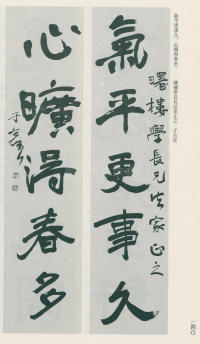 氣平更事久
曙樓學長兄法家正之
心曠得春多
于右任
一四〇